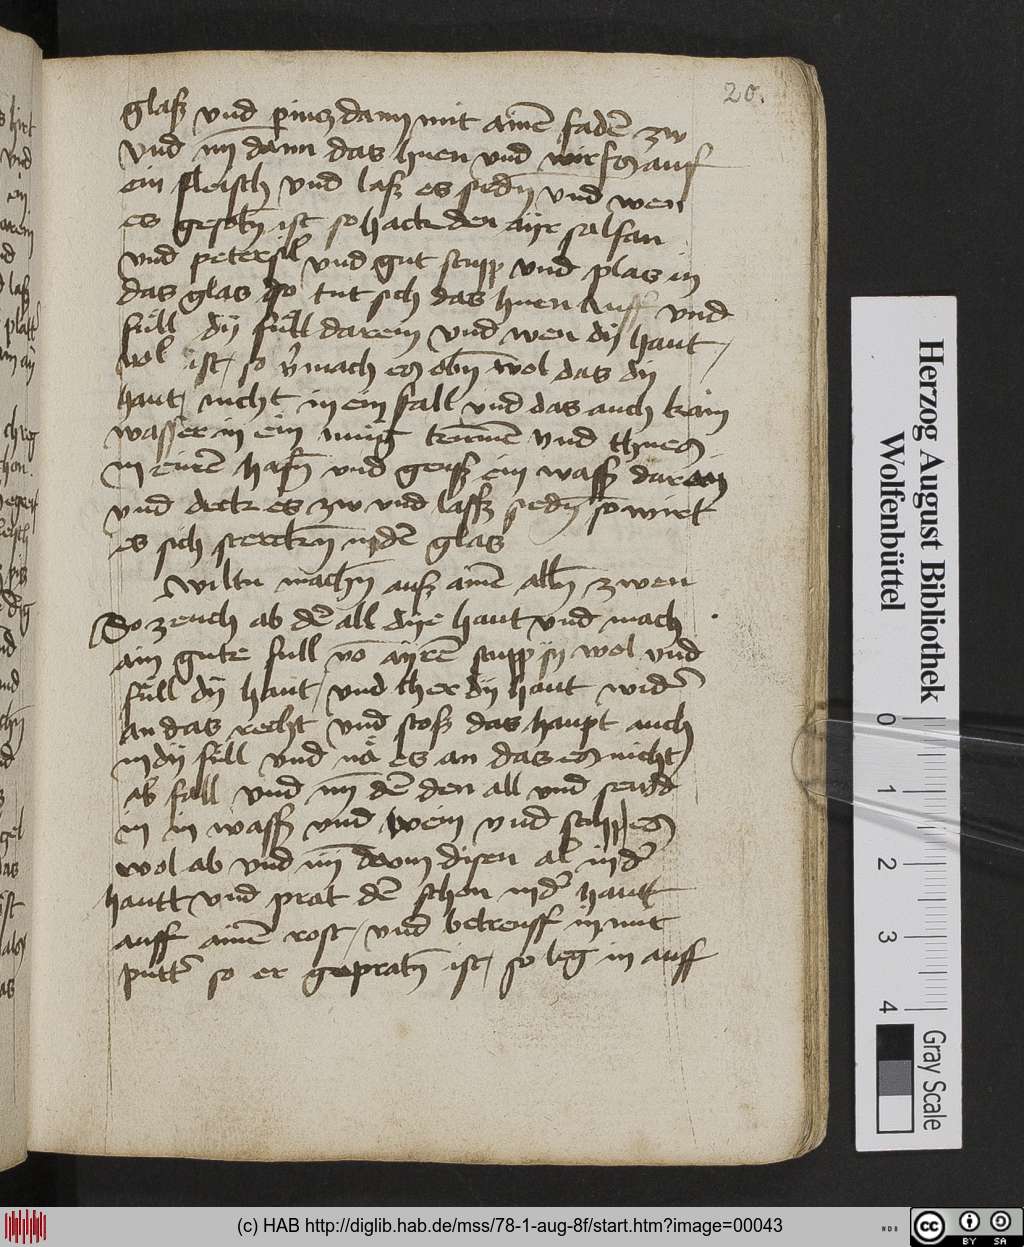 20.
glaß vnd pints dann mit aine᷑ fade᷑ zw
vnd nȳ dann das huen vnd wirf es auf
ein fleisch vnd laß es siedn̄ vnd wen
es gesotn̄ ist so hack den ayr salfan
vnd petersil vnd gut stupp vnd plas in
das glas so tut sich das huen auff vnd
füll dy füll darein vnd wen dy haut
vol ist so v̾mach es obn̄ wol das dy
haut nicht in ein fall vnd das auch kain
wasser in ein müg kume᷑ vnd thue es
in eine᷑ hafn̄ vnd geuß ein wasß darein
vnd deck es zw vnd laß siedn̄ so wirt
es sich sterckn̄ in de᷑ glas
Wiltu machn̄ auß aine᷑ all zwen
So zeuch ab de᷑ all dye haut vnd mach
ain gute full vo᷑ ayre᷑ stupp sy wol vnd
füll dy haut vnd cher dy haut wide᷑
an das recht vnd stoß das haupt auch
in dy füll vnd nä es an das es nicht
ab fall vnd nȳ de᷑ den all vnd seud
in in wasß vnd wein vnd schüpp es
wol ab vnd nȳ disen al in der
hautt vnd prat de᷑ schon in der hautt
auff aine᷑ rost vnd betreuff in mit
putter so er gepratn̄ ist so leg in auff
Herzog August Bibliothek
Wolfenbüttel
0
1
2
3
4
Gray Scale
(c) HAB http://diglib.hab.de/mss/78-1-aug-8f/start.htm?image=00043
WDB
cc BY SA